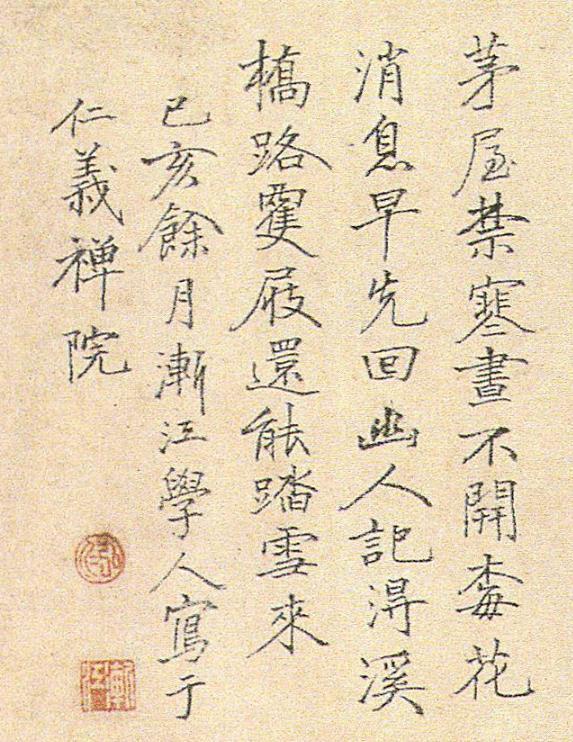 茅屋禁寒晝不開梅花
消息早先回幽人記得溪
橋路䨥屐還能踏雪來
己亥餘月漸江學人寫于
仁義禪院